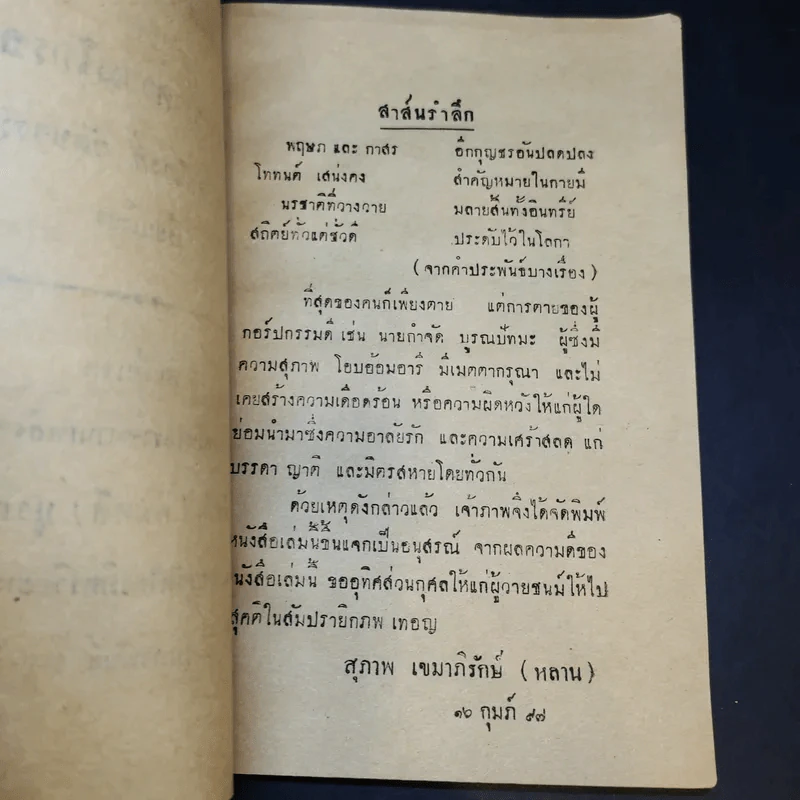 สาส์นรำลึก
พฤษภ และ กาสร อีกกุญชรอันปลดปลง
โททนต์ เสน่งคง สำคัญหมายในกายมี
นรชาติที่วางวาย มลายสิ้นทั้งอินทรีย์
สถิตย์ทั่วแต่ชั่วดี ประดับไว้ในโลกา
(จากคำประพันธ์บางเรื่อง)
ที่สุดของคนก็เพียงตาย แต่การตายของผู้
กอร์ปกรรมดี เช่น นายกำจัด บูรณปัทมะ ผู้ซึ่งมี
ความสุภาพ โอบอ้อมอารี มีเมตตากรุณา และไม่
เคยสร้างความเดือดร้อน หรือความผิดหวังให้แก่ผู้ใด
ย่อมนำมาซึ่งความอาลัยรัก และความเศร้าสลด แก่
บรรดา ญาติ และมิตรสหายโดยทั่วกัน
ด้วยเหตุดังกล่าวแล้ว เจ้าภาพจึงได้จัดพิมพ์
หนังสือเล่มนี้ขึ้นแจกเป็นอนุสรณ์ จากผลความดีของ
หนังสือเล่มนี้ ขออุทิศส่วนกุศลให้แก่ผู้วายชนม์ให้ไป
สุคติในสัมปรายิกภพ เทอญ
สุภาพ เขมาภิรักษ์ (หลาน)
๑๖ กุมภ์ ๙๗